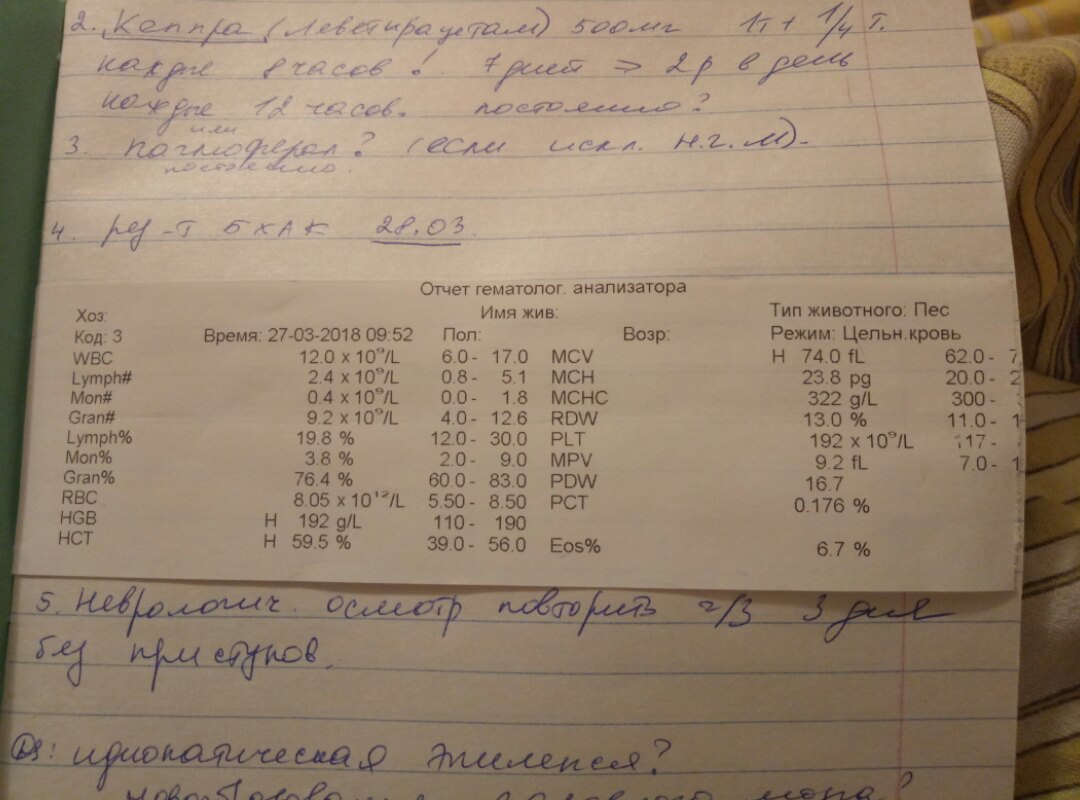 2. Keппра (Леветирацетам) 500мг 1т + 1/4 т.
каждые 8 часов! 7 дней => 2р в день
каждые 12 часов. постоянно?
или
3. паглюферал? (если искл. н.г.м).
постоянно.
4. рез-т БХАК 28.03.
Отчет гематолог. анализатора
Хоз: Имя жив: Тип животного: Пес
Код: 3 Время: 27-03-2018 09:52 Пол: Возр: Режим: Цельн.кровь
WBC 12.0 x 10⁹/L 6.0 - 17.0 MCV H 74.0 fL 62.0 - 7
Lymph# 2.4 x 10⁹/L 0.8 - 5.1 MCH 23.8 pg 20.0 - 2
Mon# 0.4 x 10⁹/L 0.0 - 1.8 MCHC 322 g/L 300 -
Gran# 9.2 x 10⁹/L 4.0 - 12.6 RDW 13.0 % 11.0 - 1
Lymph% 19.8 % 12.0 - 30.0 PLT 192 x 10⁹/L 117 -
Mon% 3.8 % 2.0 - 9.0 MPV 9.2 fL 7.0 - 1
Gran% 76.4 % 60.0 - 83.0 PDW 16.7
RBC 8.05 x 10¹²/L 5.50 - 8.50 PCT 0.176 %
HGB H 192 g/L 110 - 190
HCT H 59.5 % 39.0 - 56.0 Eos% 6.7 %
5. Неврологич. осмотр повторить ч/з 3 дня
без приступов.
DS: идиопатическая эпилепсия?
новообразование головного мозга?